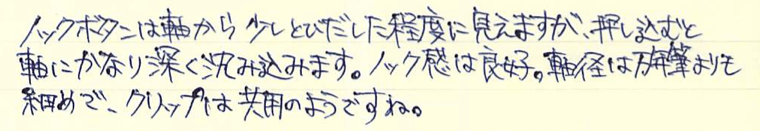 ノックボタンは軸から少しとびだした程度に見えますが、押し込むと
軸にかなり深く沈み込みます。ノック感は良好。軸径は万年筆よりも
細めで、クリップは共用のようですね。